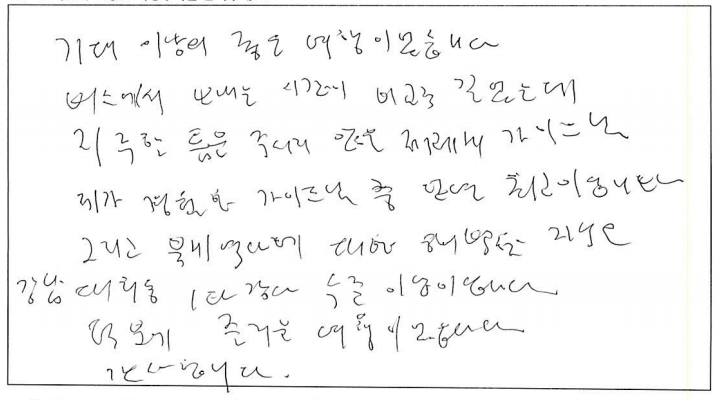 기대 이상의 좋은 여행이었습니다
버스에서 보내는 시간이 비교적 길었는데
지루한 틈을 주시지 않은 가이드님
제가 경험한 가이드님 중 단연 최고이십니다
그리고 북해도에 대한 해박한 지식은
강남 대치동 1타 강사 수준 이상이십니다
덕분에 즐거운 여행이었습니다
감사합니다.